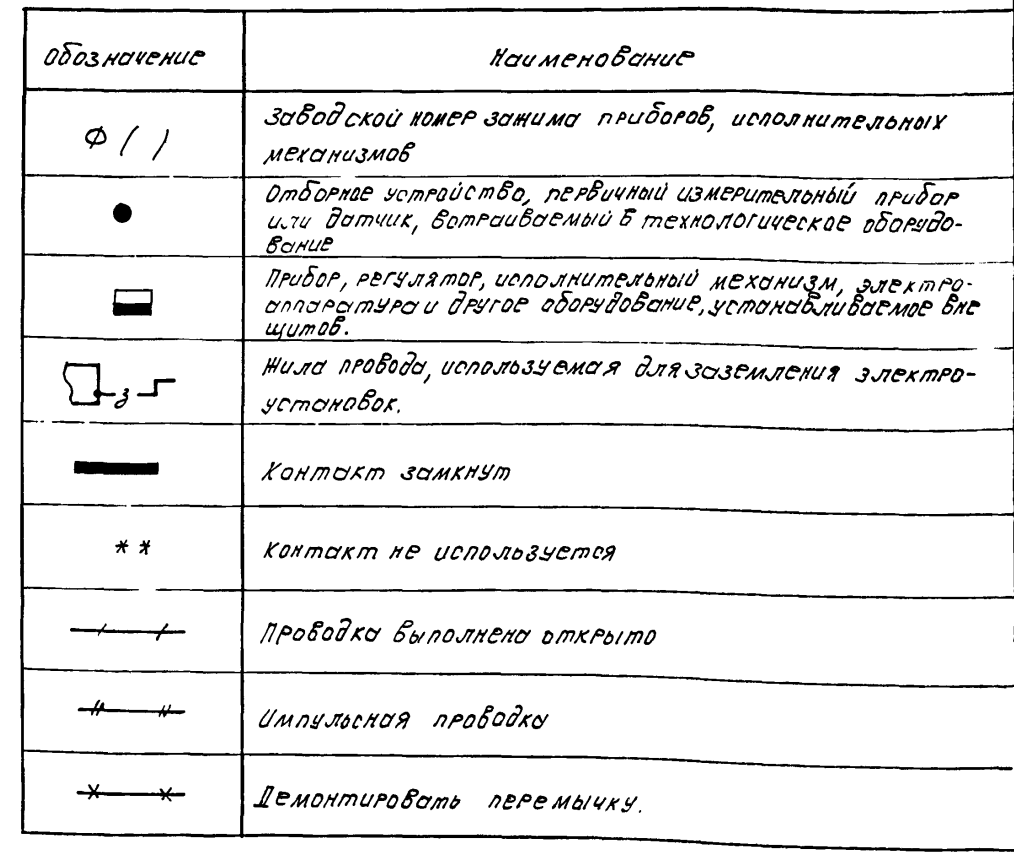 Обозначение
Наименование
Ф ( )
Заводской номер зажима приборов, исполнительных
механизмов
Отборное устройство, первичный измерительный прибор
или датчик, встраиваемый в технологическое оборудо-
вание
Прибор, регулятор, исполнительный механизм, электро-
аппаратура и другое оборудование, устанавливаемое вне
щитов.
з
Жила провода, используемая для заземления электро-
установок.
Контакт замкнут
* *
Контакт не используется
Проводка выполнена открыто
Импульсная проводка
Демонтировать перемычку.